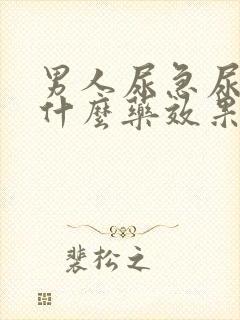 男人尿急尿
什麼藥效果
裴松之